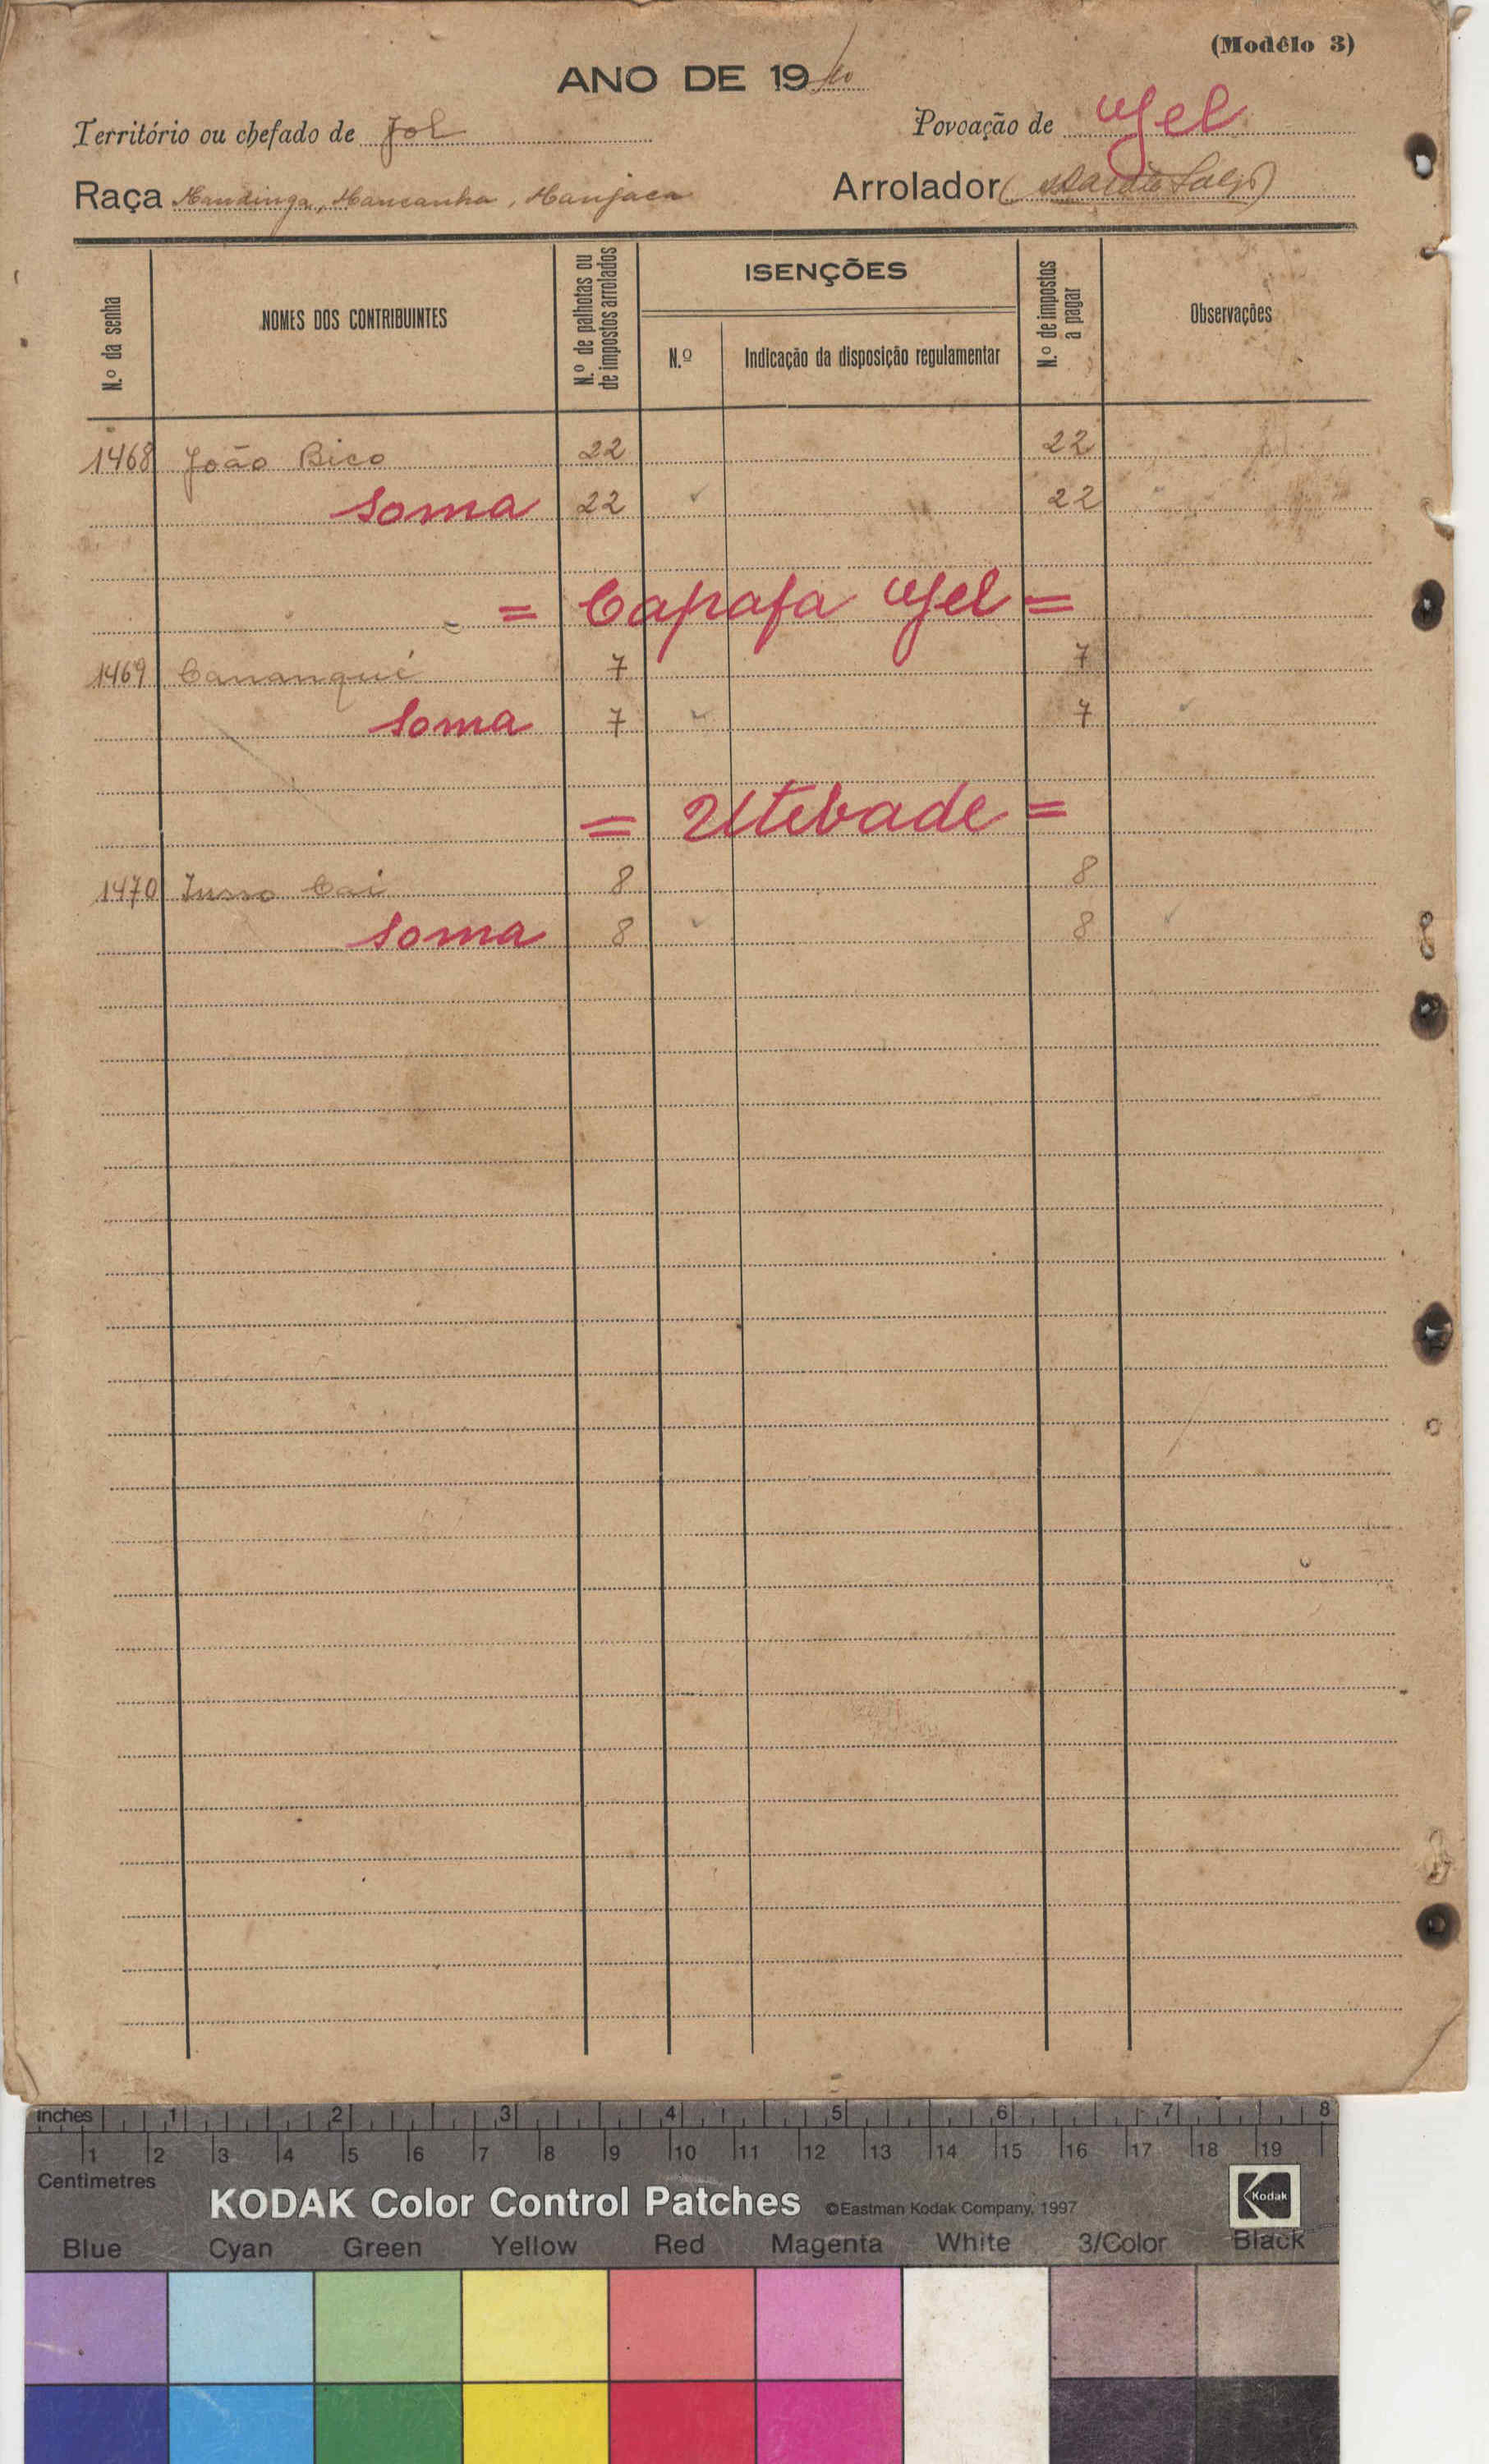 (Modêlo 3)
ANO DE 19
Território ou chefado de Jol
Povoação de Ufel
Raça Mandinga, Mancanha, Manjaca
Arrolador
N.º da senha
NOMES DOS CONTRIBUINTES
N.º de palhotas ou de impostos arrolados
ISENÇÕES
N.º
Indicação da disposição regulamentar
N.º de impostos a pagar
Observações
1468 João Bico 22 22
Soma 22 22
= Capafa Ufel =
1469 Cananqué 7 7
Soma 7 7
= Utebade =
1470 Cai 8 8
Soma 8 8
inches 1 2 3 4 5 6 7 8
1 2 3 4 5 6 7 8 9 10 11 12 13 14 15 16 17 18 19
Centimetres
KODAK Color Control Patches ©Eastman Kodak Company, 1997 Kodak
Blue Cyan Green Yellow Red Magenta White 3/Color Black